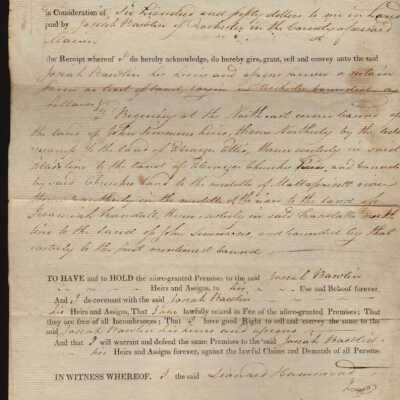 in Consideration of Six Hundred and fifty dollars to me in hand
paid by Josiah Rawlin of Rochester in the County aforesaid
of
the Receipt whereof I do hereby acknowledge, do hereby give, grant, sell and convey unto the said
Josiah Rawlin his heirs and assigns forever a certain
tract of land in Rochester bounded as
follows
Beginning at the North east corner
the land of John Simmons thence Northerly by the
to the land of Ellis, thence westerly in said
line to the land of Church and bounded
by said land to the middle of Mattapoisett river
thence Southerly in the middle of the river to the land of
Jeremiah Randall, thence easterly in said Randalls north
line to the land of John Simmons, and bounded by that
easterly to the first mentioned bound
TO HAVE and to HOLD the afore-granted Premises to the said Josiah Rawlin
his Heirs and Assigns, to his Use and Behoof forever.
And I do covenant with the said Josiah Rawlin
his Heirs and Assigns, That I am lawfully seized in Fee of the afore-granted Premises; That
they are free of all Incumbrances; That I have good Right to sell and convey the same to the
said Josiah Rawlin his heirs and assigns
And that I will warrant and defend the same Premises to the said Josiah Rawlin
his Heirs and Assigns forever, against the lawful Claims and Demands of all Persons.
IN WITNESS WHEREOF, I the said Leonard Hammond